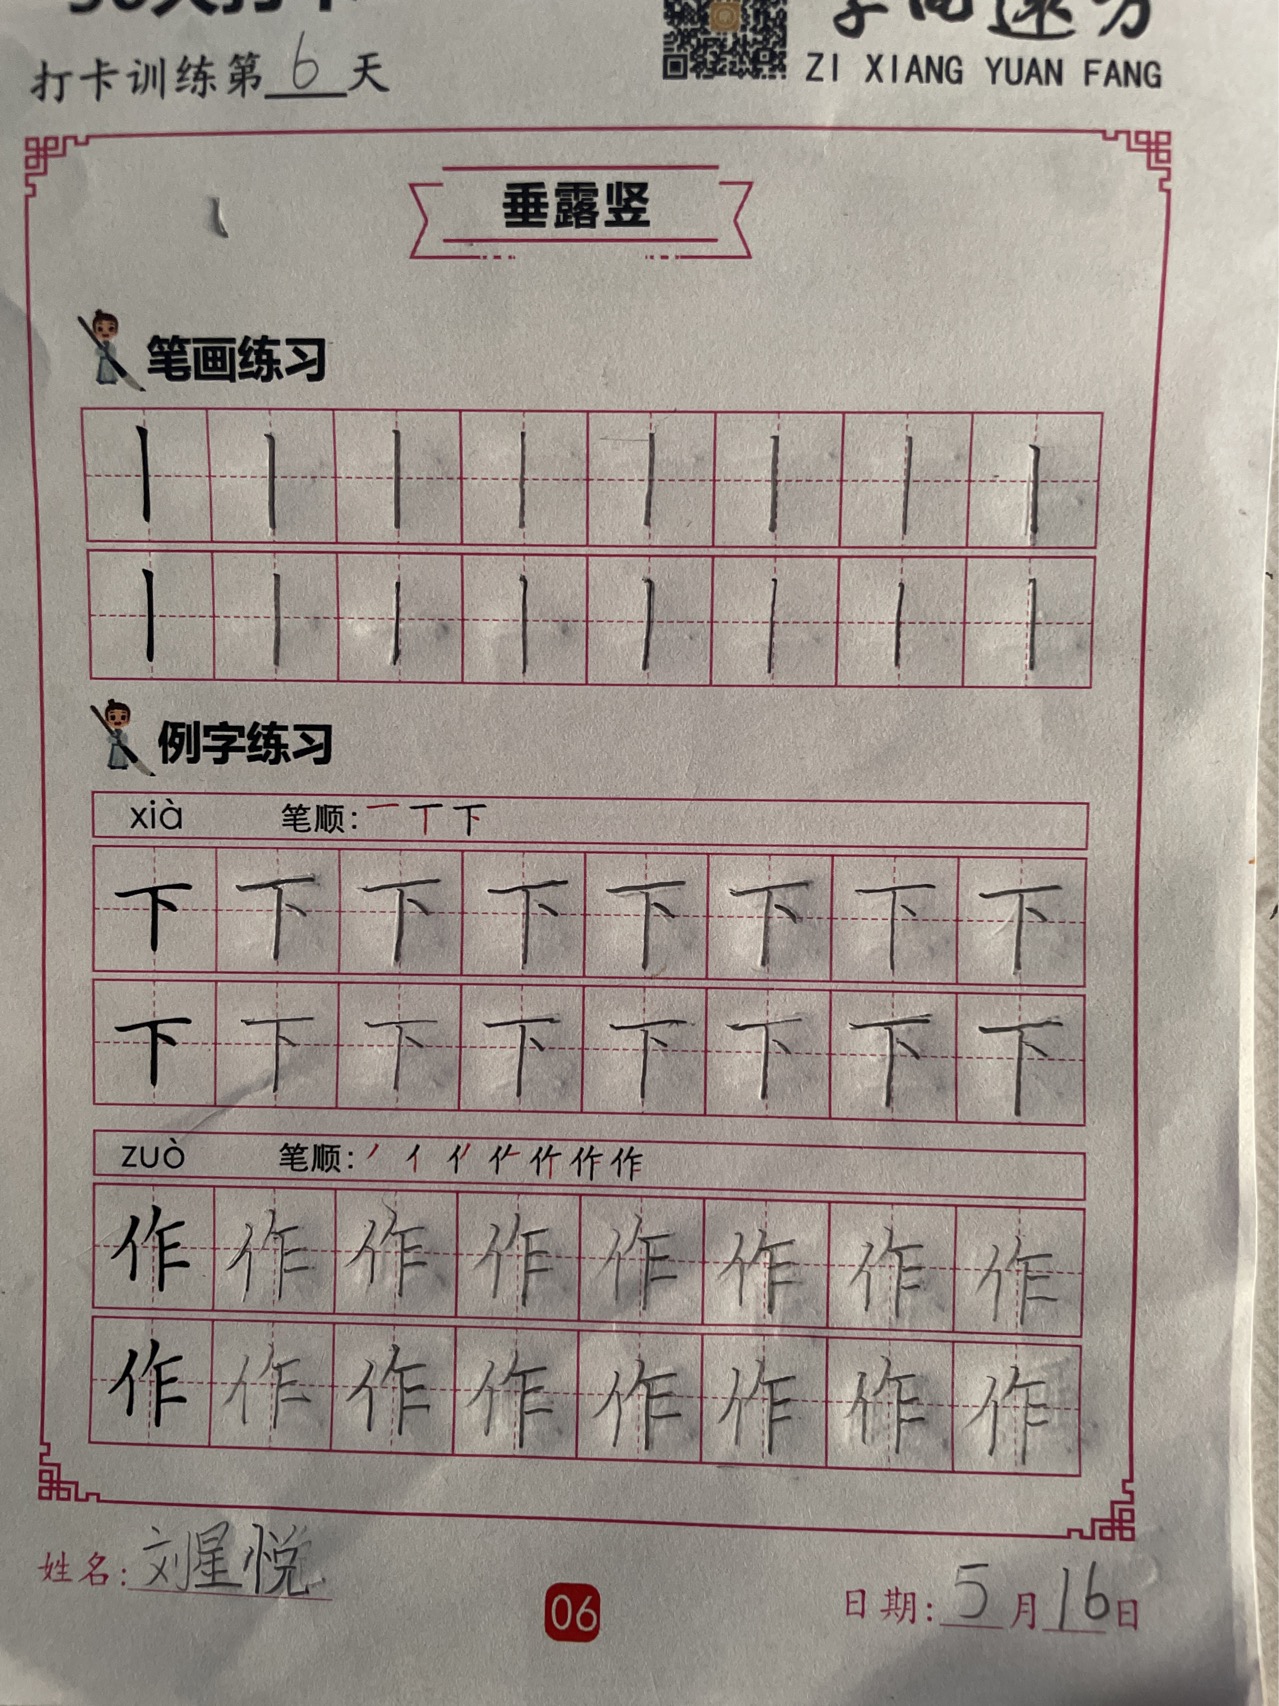 打卡训练第6天
ZI XIANG YUAN FANG
垂露竖
笔画练习
丨丨丨丨丨丨丨丨
丨丨丨丨丨丨丨丨
例字练习
xià 笔顺:一丅下
下下下下下下下下
下下下下下下下下
zuò 笔顺:
作作作作作作作作
作作作作作作作作
姓名:刘星悦
06
日期:5月16日